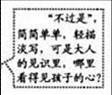 “不过是”，
简简单单，轻描
淡写，可是大人
的见识里，哪里
看得见孩子的心？